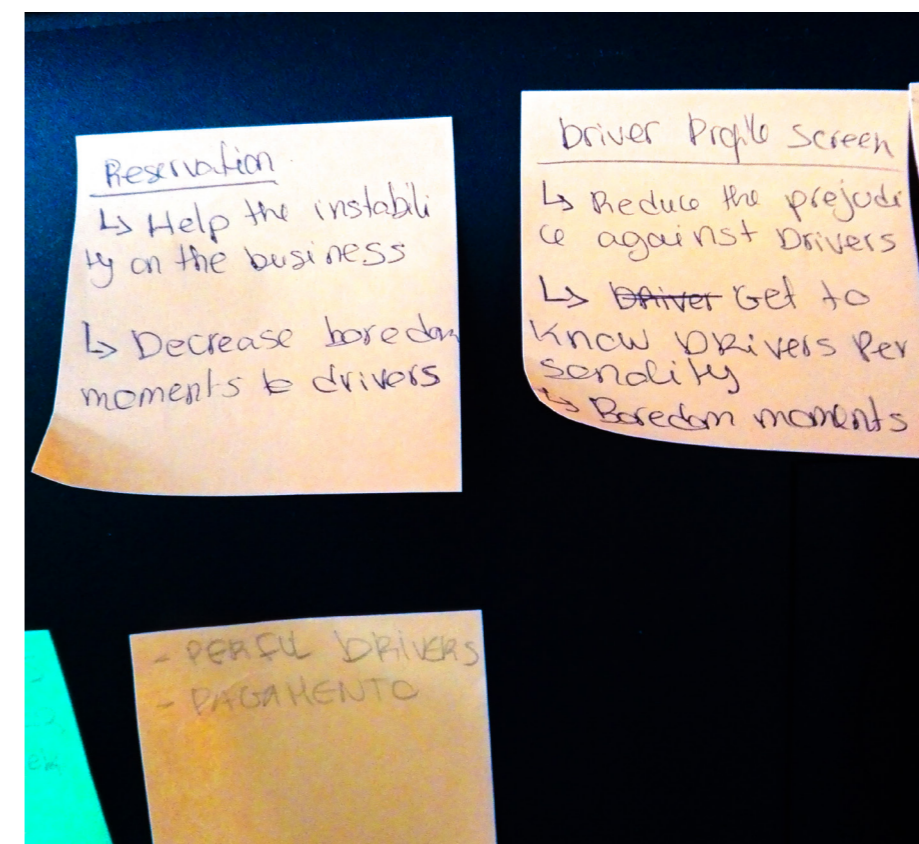 Reservation
↳ Help the instabili
ty on the business
↳ Decrease boredom
moments to drivers
Driver Profile Screen
↳ Reduce the prejudi
ce against Drivers
↳ Driver Get to
Know DRivers Per
sonality
↳ Boredom moments
- PERFIL DRIVERS
- PAGAMENTO